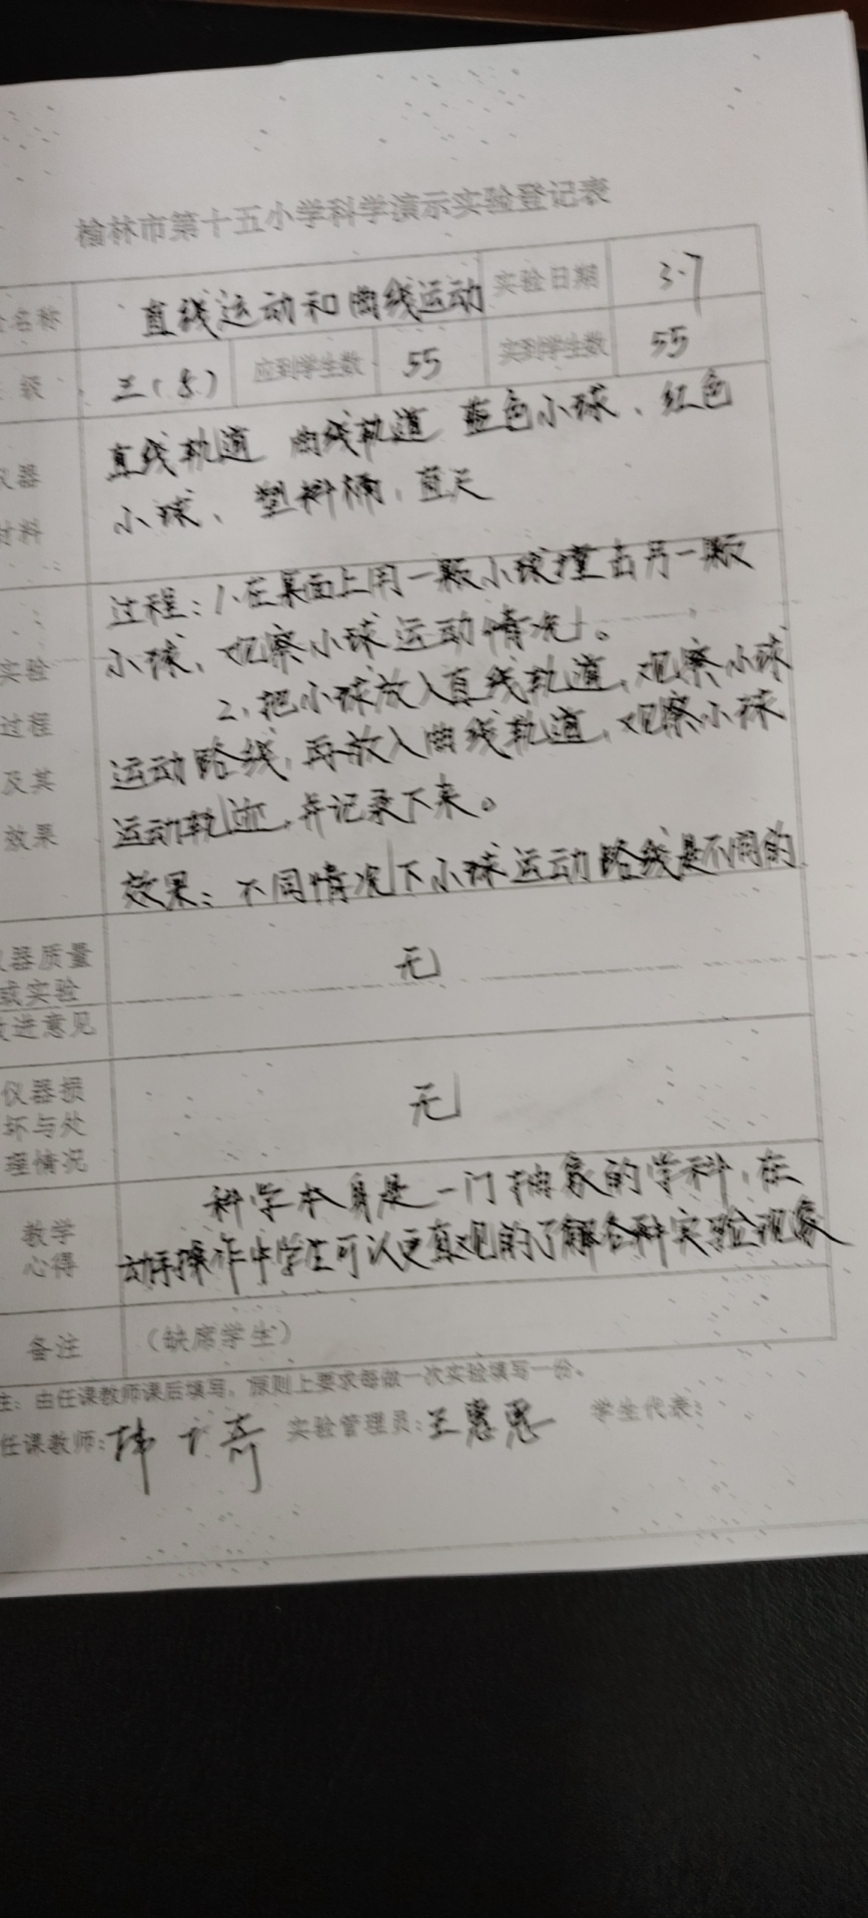 榆林市第十五小学科学演示实验登记表
名称 直线运动和曲线运动 实验日期 3.7
级 三(5) 应到学生数 55 实到学生数 55
仪器 直线轨道 曲线轨道 蓝色小球、红色
材料 小球、塑料桶、
过程:1、在桌面上用一颗小球撞击另一颗
小球,观察小球运动情况。
实验 2、把小球放入直线轨道,观察小球
过程 运动路线,再放入曲线轨道,观察小球
及其 运动轨迹,并记录下来。
效果 效果:不同情况下小球运动路线是不同的
仪器质量 无
或实验
改进意见
仪器损 无
坏与处
理情况
教学 科学本身是一门抽象的学科,在
心得 动手操作中学生可以更直观的了解各种实验现象
备注 (缺席学生)
注:由任课教师课后填写,原则上要求每做一次实验填写一份。
任课教师: 实验管理员: 学生代表: